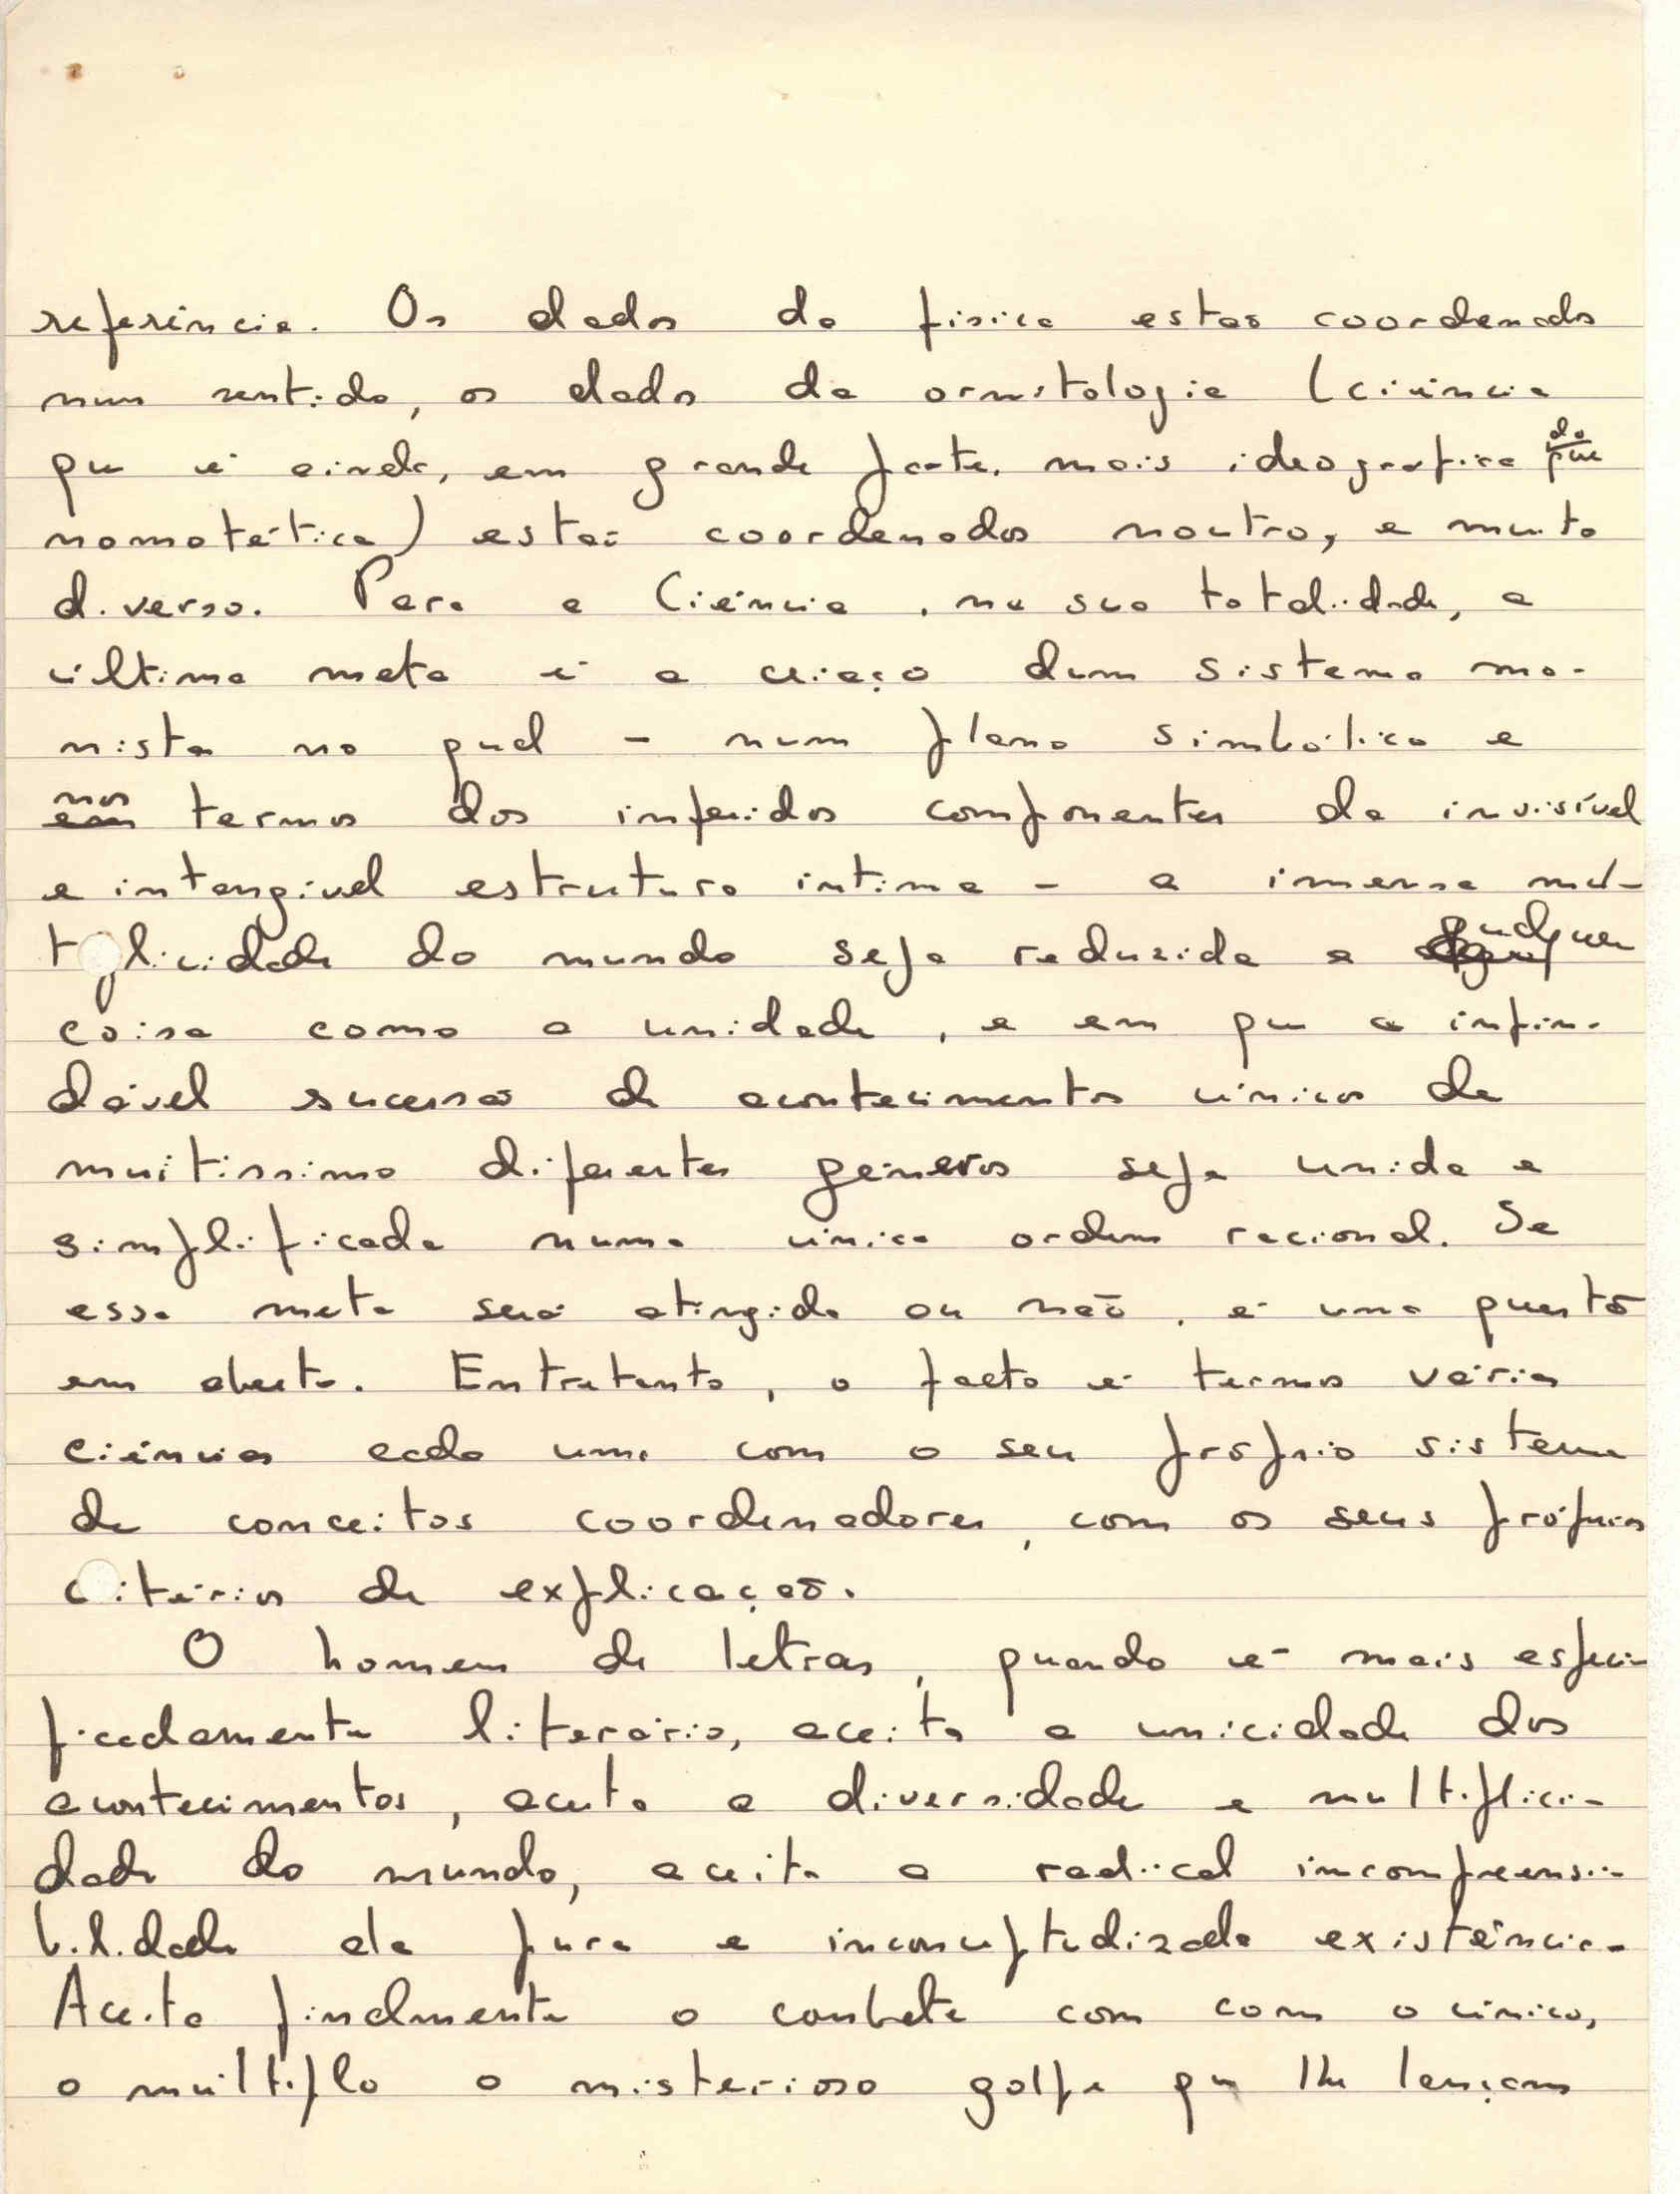 referência. Os dados da física estão coordenados
num sentido, os dados da ornitologia (ciência
que é ainda, em grande parte, mais ideografica do que
nomotética) estão coordenados noutro, e muito
diverso. Para a Ciência, na sua totalidade, a
última meta é a criação dum sistema mo-
nista no qual - num plano simbólico e
nos termos dos inferidos componentes da invisível
e intangível estrutura íntima - a imensa mul-
tiplicidade do mundo seja reduzida a qualquer
coisa como a unidade, e em que a infin-
dável sucessão de acontecimentos únicos de
muitíssimo diferentes géneros seja unida e
simplificada numa única ordem racional. Se
essa meta será atingida ou não, é uma questão
em aberto. Entretanto, o facto é termos várias
ciências cada uma com o seu próprio sistema
de conceitos coordenadores, com os seus próprios
critérios de explicação.
O homem de letras, quando é mais especi-
ficadamente literário, aceita a unicidade dos
acontecimentos, aceita a diversidade e multiplici-
dade do mundo, aceita a radical incompreensi-
bilidade da pura e inconceptualizada existência.
Aceita finalmente o combate com com o único,
o múltiplo o misterioso golpe que lhe lançam